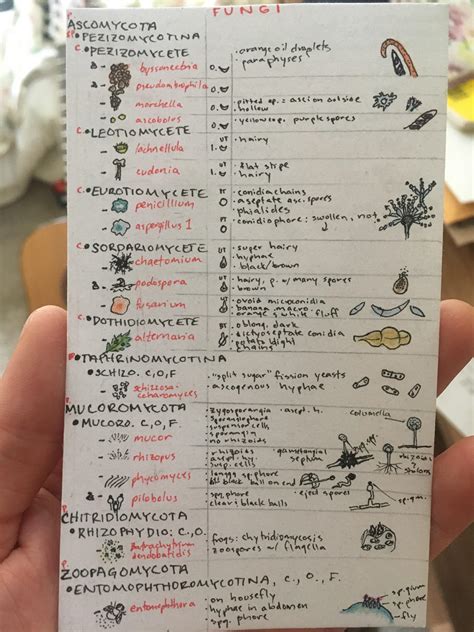 FUNGI
P. ASCOMYCOTA
SP. PEZIZOMYCOTINA
C. PEZIZOMYCETE
orange oil droplets
paraphyses
byssonectria
O.
pseudombrophila
morchella
pitted ap. = asci on outside
hollow
ascobolus
yellow ap. purple spores
C. LEOTIOMYCETE
UT
hairy
lachnellula
I.
cudonia
flat stipe
hairy
C. EUROTIOMYCETE
conidia chains
penicillium
aseptate asc. spores
phialides
aspergillus 1
conidiophore: swollen, not
C. SORDARIOMYCETE
UT
super hairy
chaetomium
hyphae
black/brown
podospora
UT
hairy, p. w/ many spores
brown
fusarium
ovoid microconidia
banana macro
fluff
C. DOTHIDIOMYCETE
BT
oblong, dark
alternaria
dictyoseptate conidia
potato blight
chains
TAPHRINOMYCOTINA
SCHIZO. C,O,F
"split sugar" fission yeasts
schizosaccharomyces
ascogenous hyphae
MUCOROMYCOTA
zygosporangia asept. h.
columella
MUCORO. C,O,F.
sporangiophore
suspensor cells
sporangia
mucor
no rhizoids
rhizopus
rhizoids
gametangial septum
asept. hy.
susp. cells
rhizoids & stolons
phycomyces
black ball on end
pilobolus
spg. phore
eject spores
clear + black balls
P. CHITRIDIOMYCOTA
RHIZOPHYDIO: C.,O.
frogs: chytridiomycosis
batrachytrium dendobatidis
zoospores w/ flagella
P. ZOOPAGOMYCOTA
ENTOMOPHTHOROMYCOTINA, C., O., F.
entomophthora
on housefly
hyphae in abdomen
spg. phore
sp. gium
sp. phore
fly